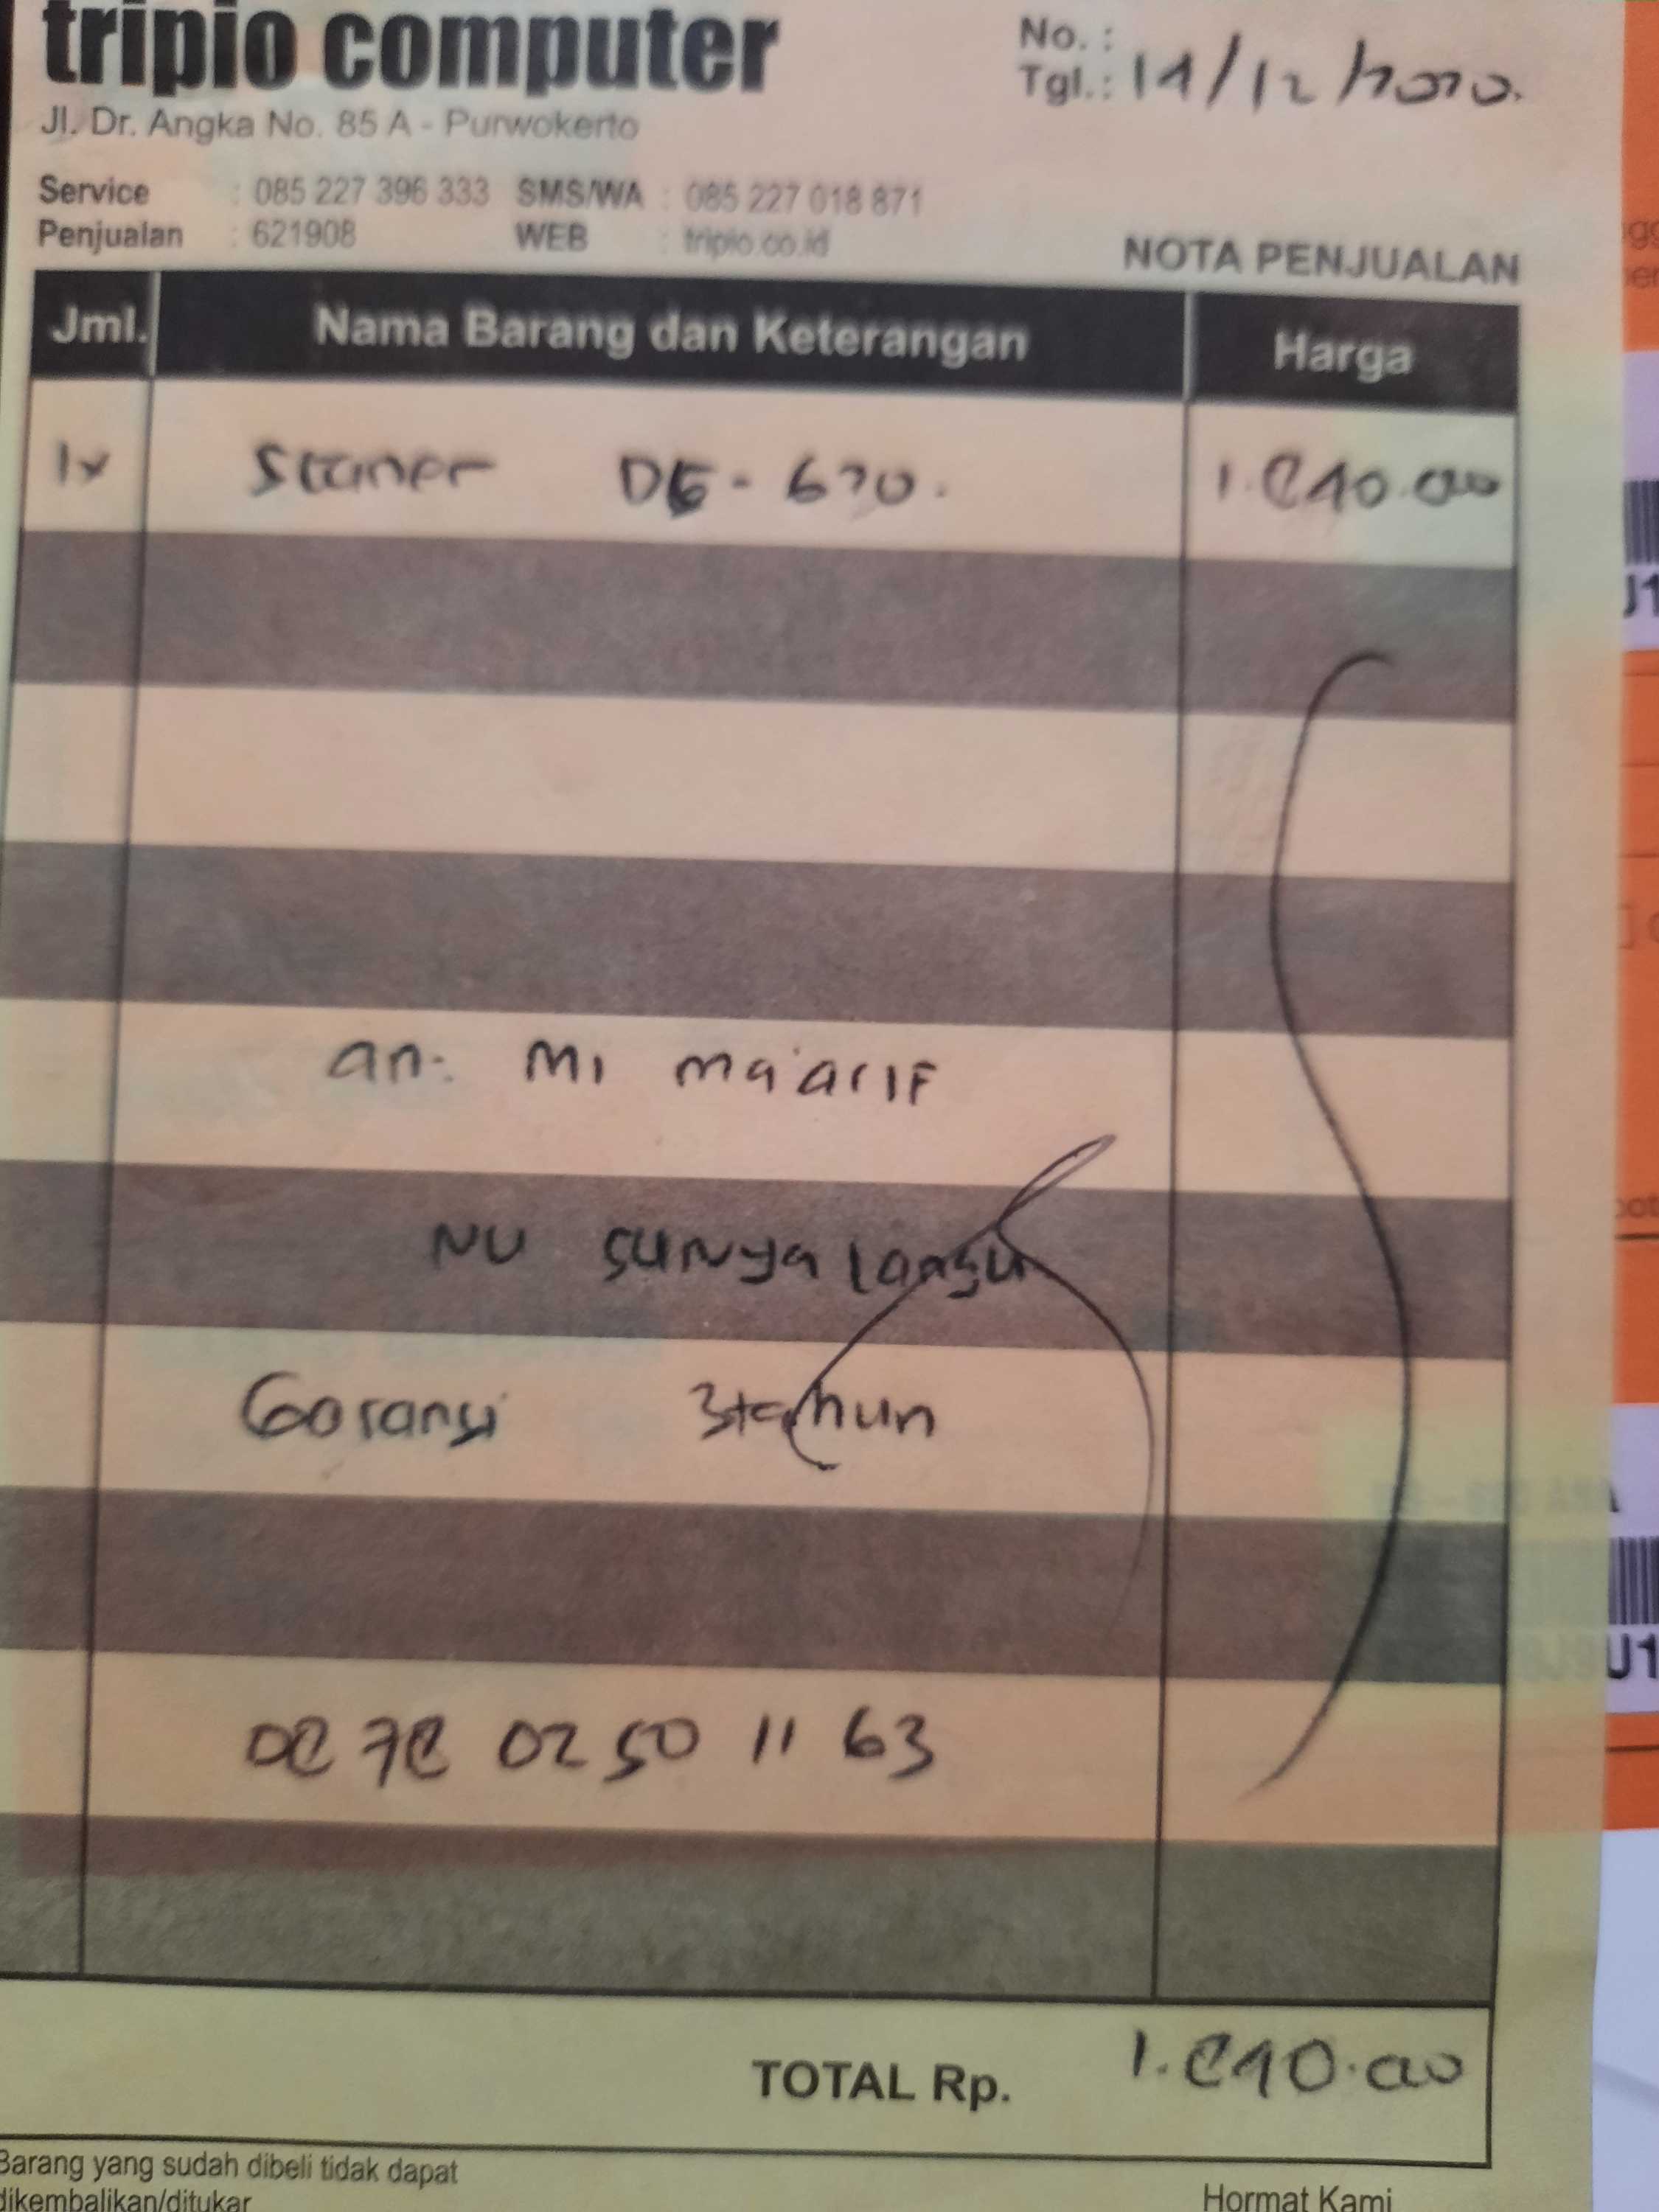 tripio computer
No. :
Tgl. : 14/12/2020.
Jl. Dr. Angka No. 85 A - Purwokerto
Service : 085 227 396 333 SMS/WA : 085 227 018 871
Penjualan : 621908 WEB : tripio.co.id
NOTA PENJUALAN
Jml. Nama Barang dan Keterangan Harga
1x Scaner DE-620. 1.840.000
an: MI ma'arif
NU sunyalangu
Garansi 3 tahun
08 78 02 50 11 63
TOTAL Rp. 1.840.000
Barang yang sudah dibeli tidak dapat
dikembalikan/ditukar
Hormat Kami